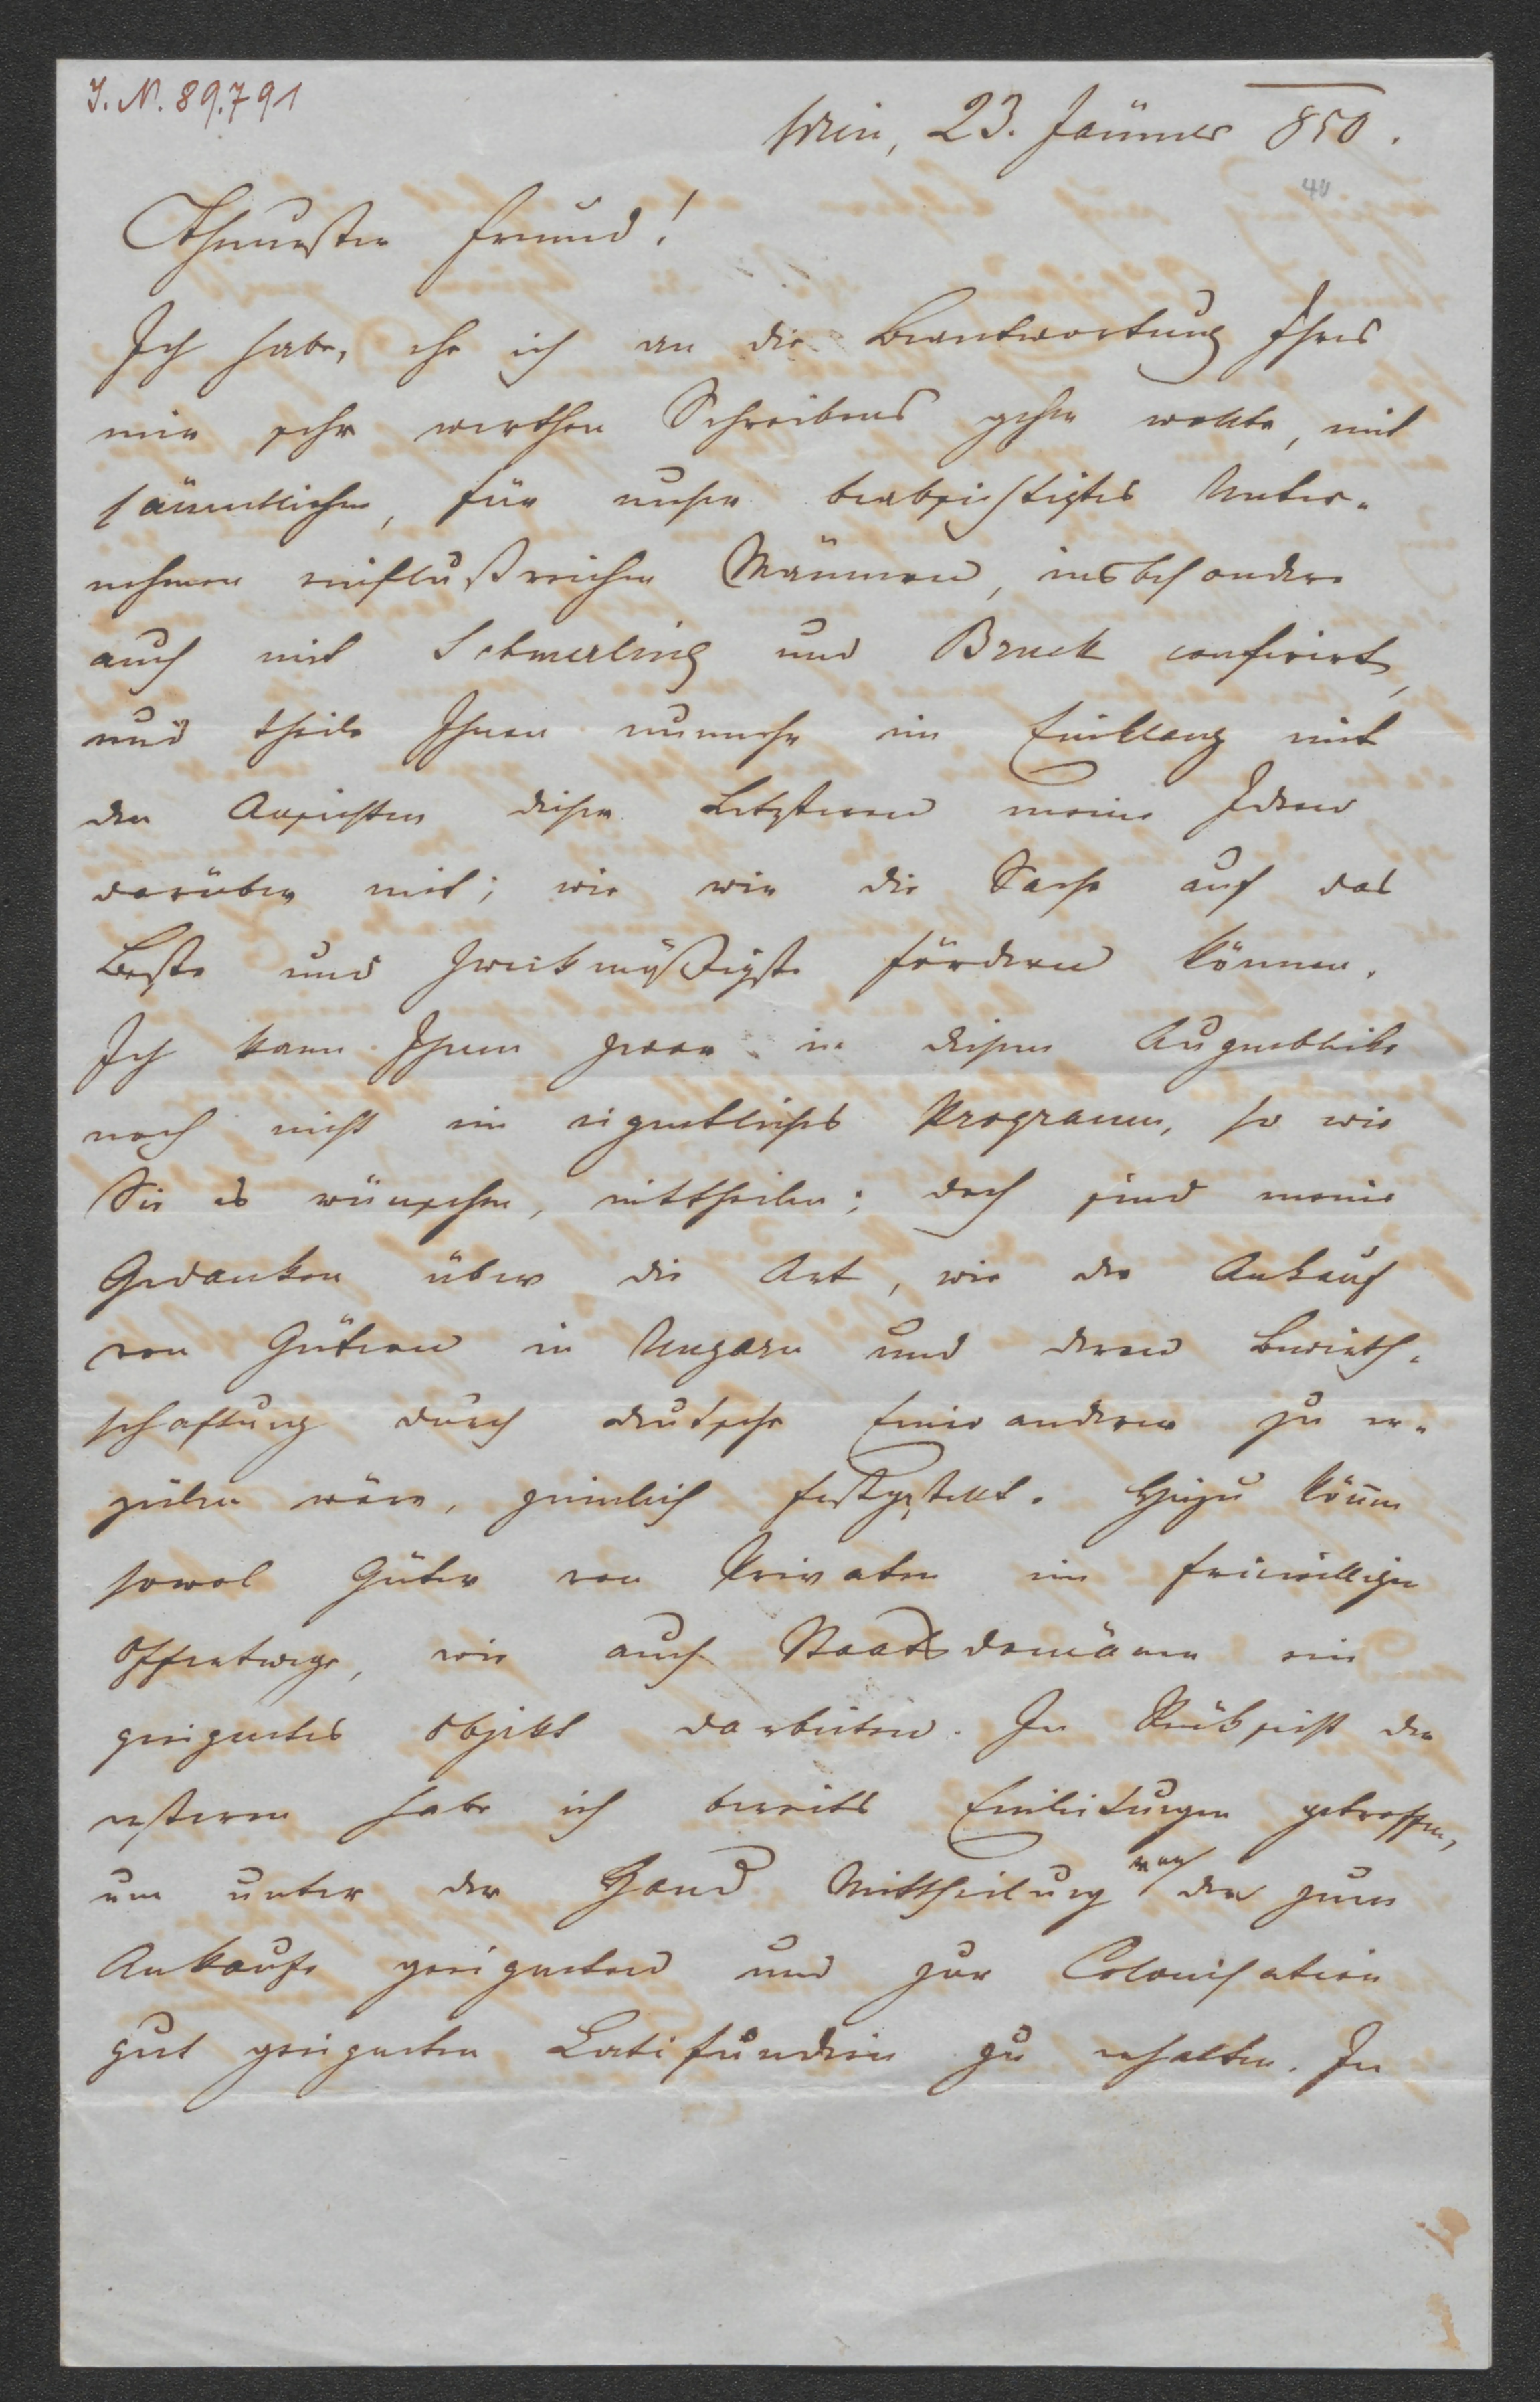 I. N. 89.791
Wien, 23. Jänner 850.
40
Theuerster Freund!
Ich habe, ehe ich an die Beantwortung Ihres
mir sehr werthen Schreibens gehen wollte, mit
sämmtlichen, für unser beabsichtigtes Unter-
nehmen einflußreichen Männern, insbesondere
auch mit Schmerling und Bruck conferirt,
und theile Ihnen nunmehr im Einklang mit
den Ansichten dieser Letzteren meine Ideen
darüber mit; wie wir die Sache auf das
Beste und Zweckmäßigste fördern können.
Ich kann Ihnen zwar in diesem Augenblike
noch nicht ein eigentliches Programm, so wie
Sie es wünschen, mittheilen; doch sind meine
Gedanken über die Art, wie der Ankauf
von Gütern in Ungarn und deren Bewirth-
schaftung durch deutsche Einwanderer zu er-
zielen wäre, ziemlich festgestellt. Hiezu können
sowol Güter von Privaten im freiwilligen
Offertwege, wie auch Staatsdomänen ein
geeignetes Objekt darbieten. In Rüksicht der
ersteren habe ich bereits Einleitungen getroffen,
um unter der Hand Mittheilung von den zum
Ankaufe geeigneten und zur Colonisation
gut geeigneten Latifundien zu erhalten. In